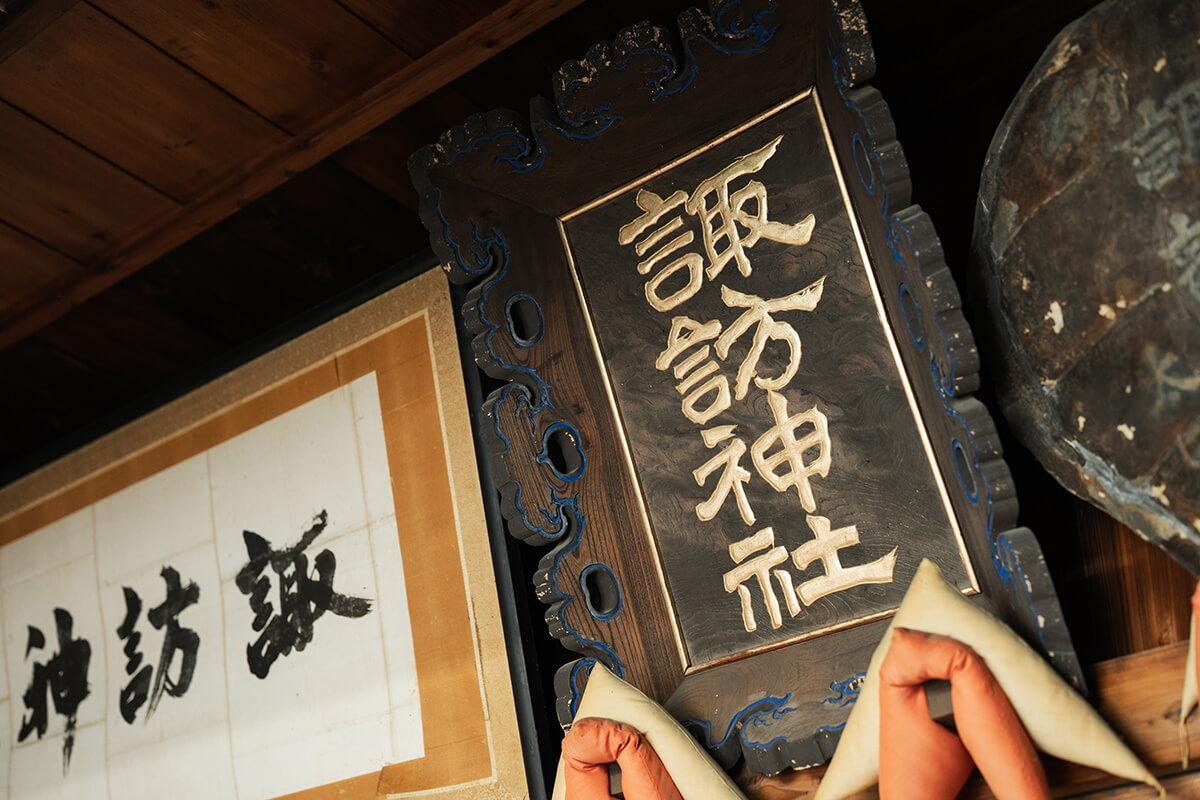 諏訪神社
諏訪神